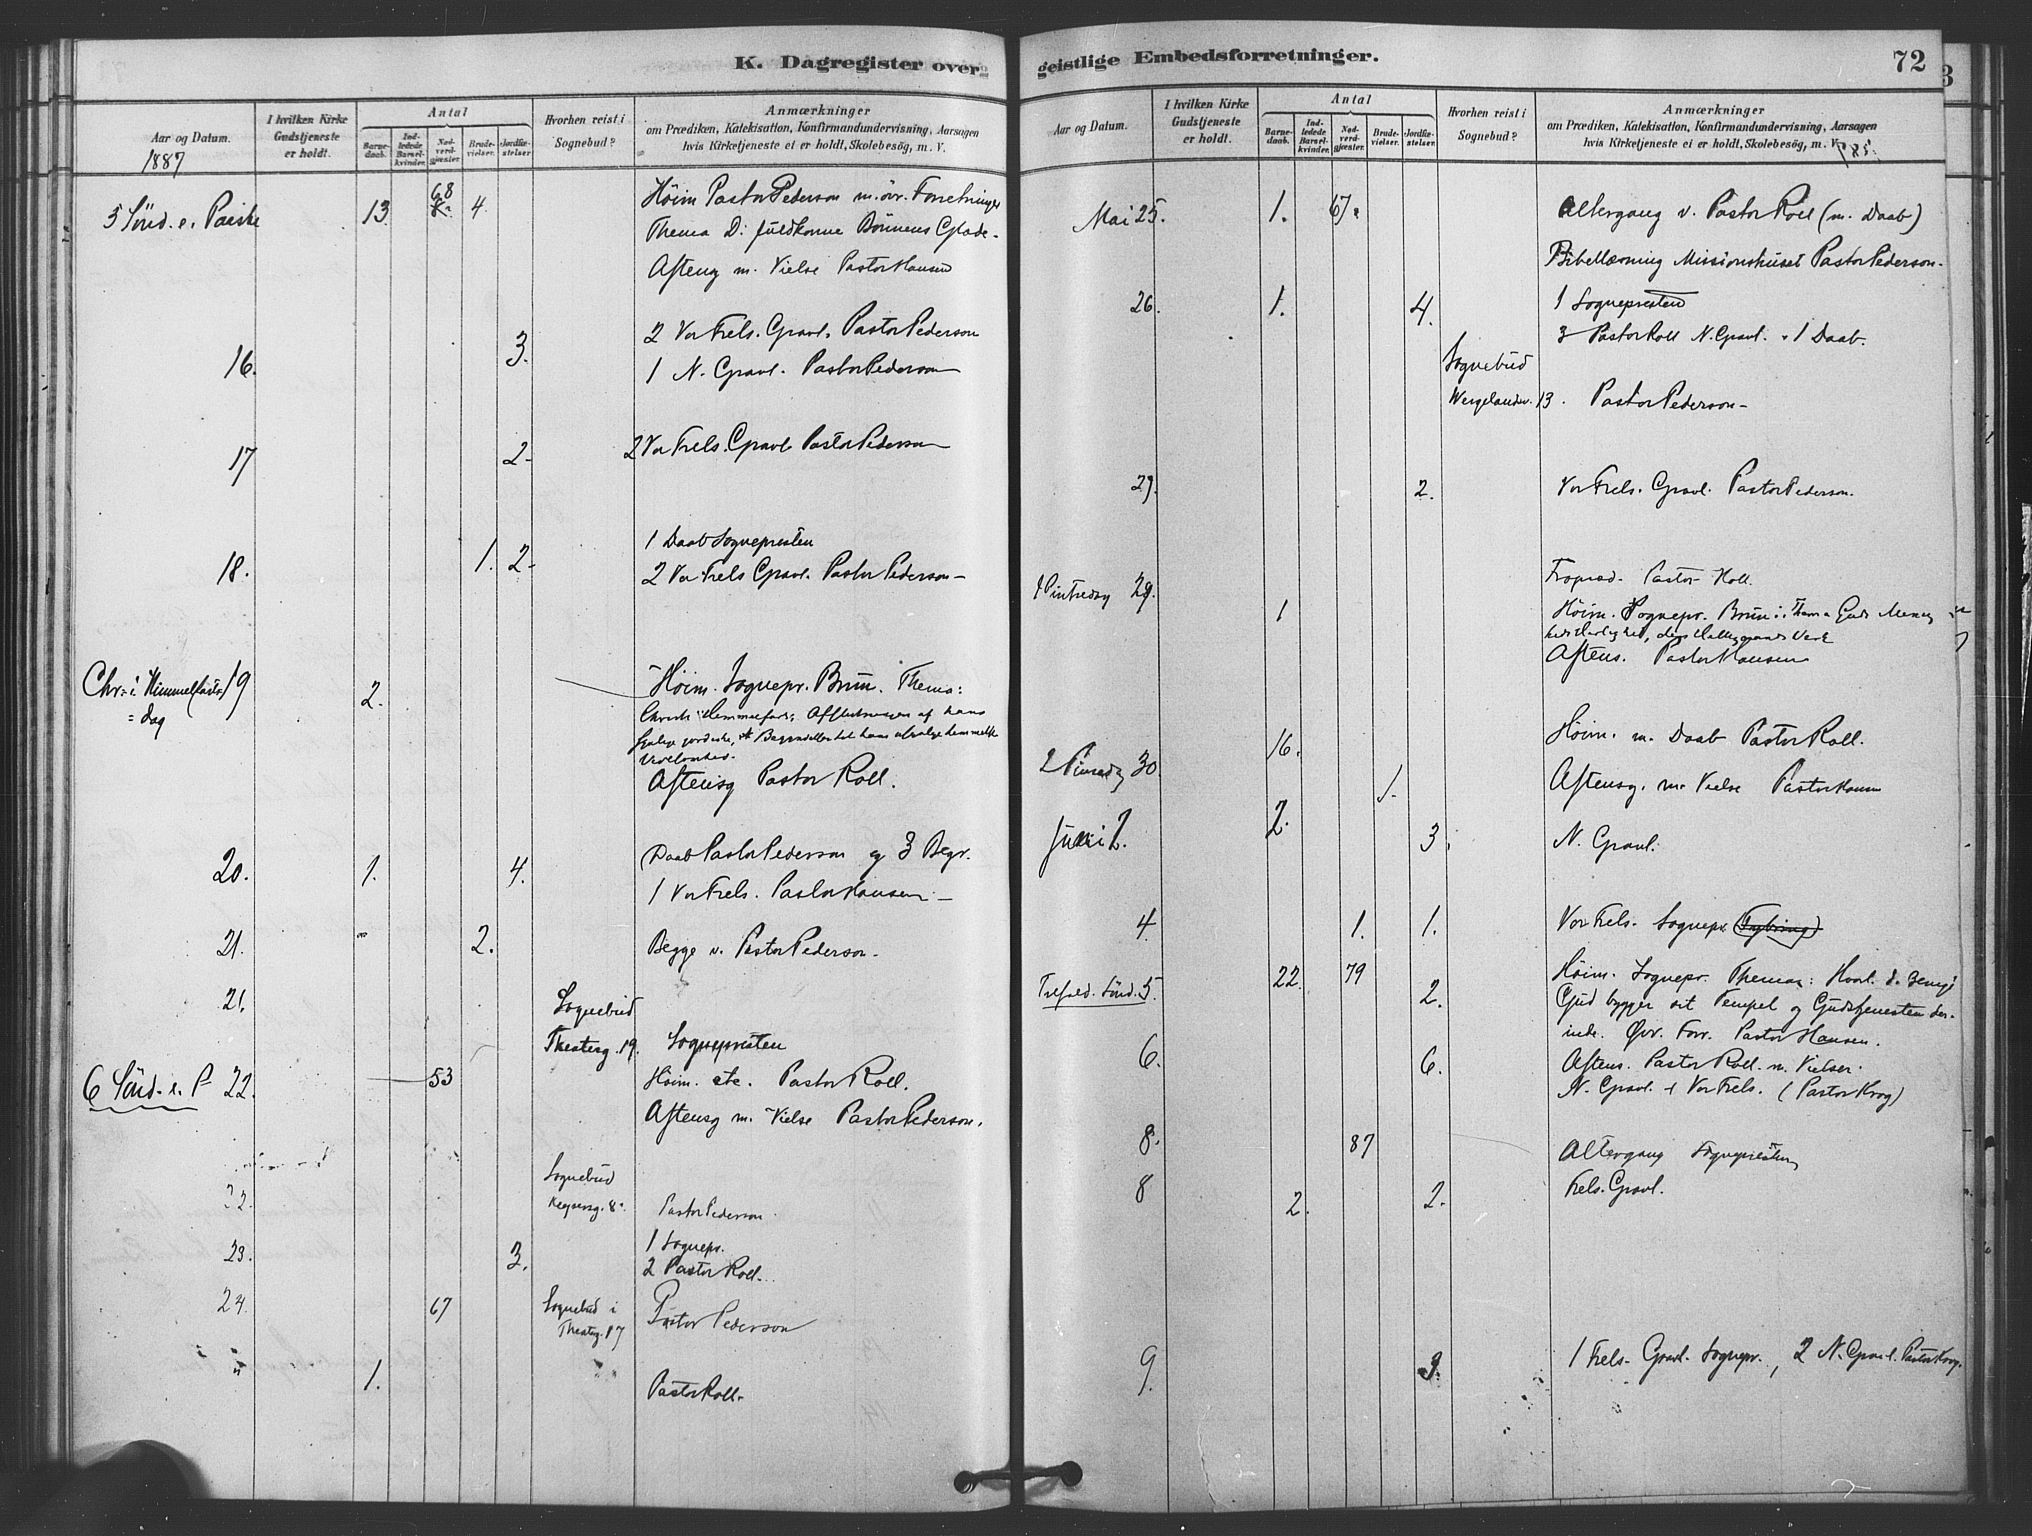 K. Dagregister over
Aar og Datum.
1887
I hvilken Kirke Gudstjeneste er holdt.
Antal
Barne-daab.
Ind-ledede Barsel-kvinder.
Nad-verd-gjester.
Brude-vielser.
Jordfæ-stelser
Hvorhen reist i Sognebud?
Anmærkninger
om Prædiken, Katekisation, Konfirmandundervisning, Aarsagen
hvis Kirketjeneste ei er holdt, Skolebesög, m. V.
5 Sönd. e. Paaske 13 68 4. Höim Pastor Pederson m. övr. Forretninger
Thema D: fuldkomne Bönnens Glæde-
Aftensg m. Vielse Pastor Hansen
2 Vor Frels. Gravl. Pastor Pederson
16. 3. 1 N. Gravl. Pastor Pederson
17 2- 2 Vor Frels. Gravl Pastor Pederson
1 Daab Sognepresten
18. 1. 2- 2 Vor Frels Gravl. Pastor Pederson-
Chr. i Himmelfarts 19 2. Höim. Sognepr. Brun. Thema:
=dag
Aftensg Pastor Roll.
20. 1. 4. Daab Pastor Pederson og 3 Begr.
1 Vor Frels. Pastor Hansen-
21. 2. Begge v. Pastor Pederson-
21. Sognebud
Theaterg. 19. Sognepresten
6 Sönd. e. P 22. 53 Höim. etc. Pastor Roll.
Aftensg m. Vielse Pastor Pederson.
22. Sognebud
Keysersg. 8. Pastor Pederson
23. 3. 1 Sognepr.
2 Pastor Roll.
24. 67 Sognebud i
Theaterg. 17 Pastor Pederson
" 1. Pastor Roll-
geistlige Embedsforretninger.
72
Aar og Datum.
I hvilken Kirke Gudstjeneste er holdt.
Antal
Barne-daab.
Ind-ledede Barsel-kvinder.
Nad-verd-gjester.
Brude-vielser.
Jordfæ-stelser.
Hvorhen reist i Sognebud?
Anmærkninger
om Prædiken, Katekisation, Konfirmandundervisning, Aarsagen
hvis Kirketjeneste ei er holdt, Skolebesög, m. V.
Mai 25. 1. 67. Altergang v. Pastor Roll (m. Daab)
Bibellæsning Missionshuset Pastor Pederson-
26. 1. 4. 1 Sognepresten
3 Pastor Roll N. Gravl. 1 Daab.
Sognebud
Wergelandsv. 13. Pastor Pederson-
27. 2. Vor Frels. Gravl. Pastor Pederson.
Fropræd. Pastor Roll.
1 Pintsedag 29. 1 Höim. Sognepr. Brun: Thema Guds
Aftens. Pastor Hansen
16. Höim. m. Daab Pastor Roll.
2 Pinsedag 30 1. Aftensg. m. Vielse Pastor Hansen
Juni 2. 2. 3. N. Gravl.
4. 1. 1. Vor Frels. Sognepr.
Trefold. Sönd. 5. 22. 79 2. Höim. Sognepr. Thema: Hvorl. d. 3enige
Gud bygger sit Tempel og Gudstjenesten der-
inde. Övr. Forr. Pastor Hansen.
6. 6. Aftens. Pastor Roll. m. Vielser.
N. Gravl + Vor Frels. (Pastor Krog)
8. 87 Altergang Sognepresten
8 2. 2. Frels. Gravl.
9. 3. 1 Frels. Gravl. Sognepr., 2 N. Gravl. Pastor Krog.